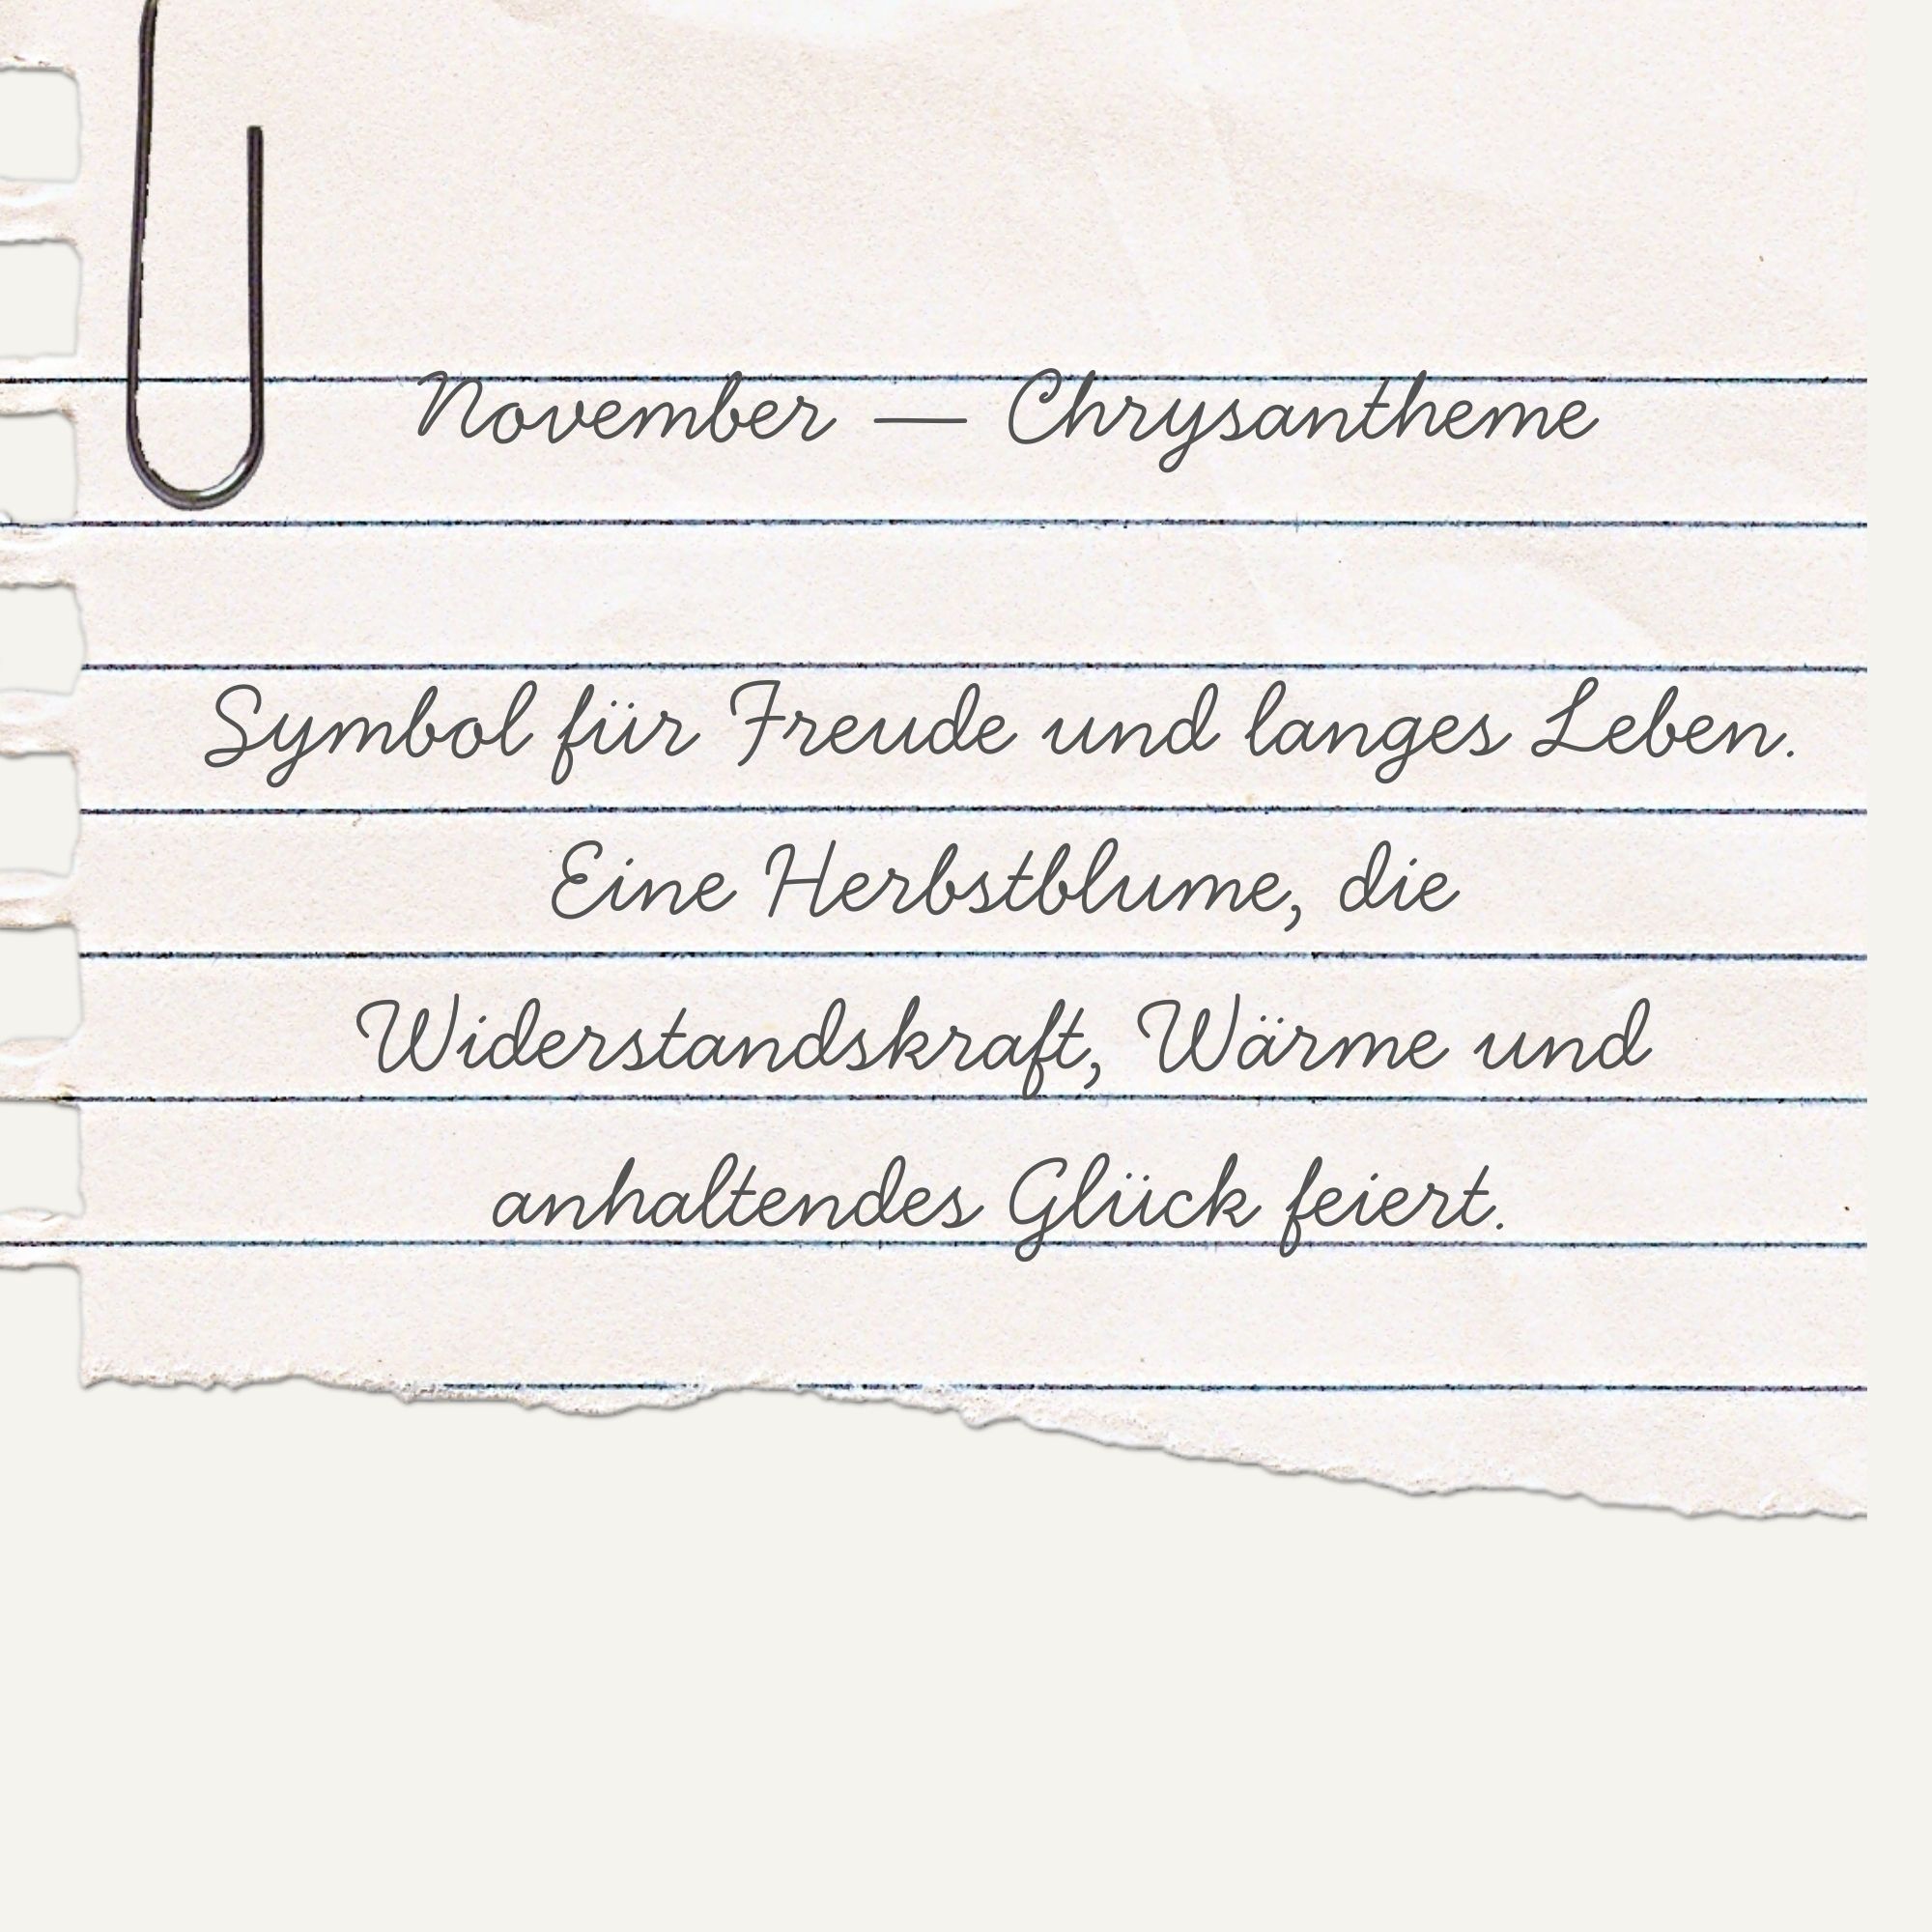 November — Chrysantheme
Symbol für Freude und langes Leben.
Eine Herbstblume, die
Widerstandskraft, Wärme und
anhaltendes Glück feiert.